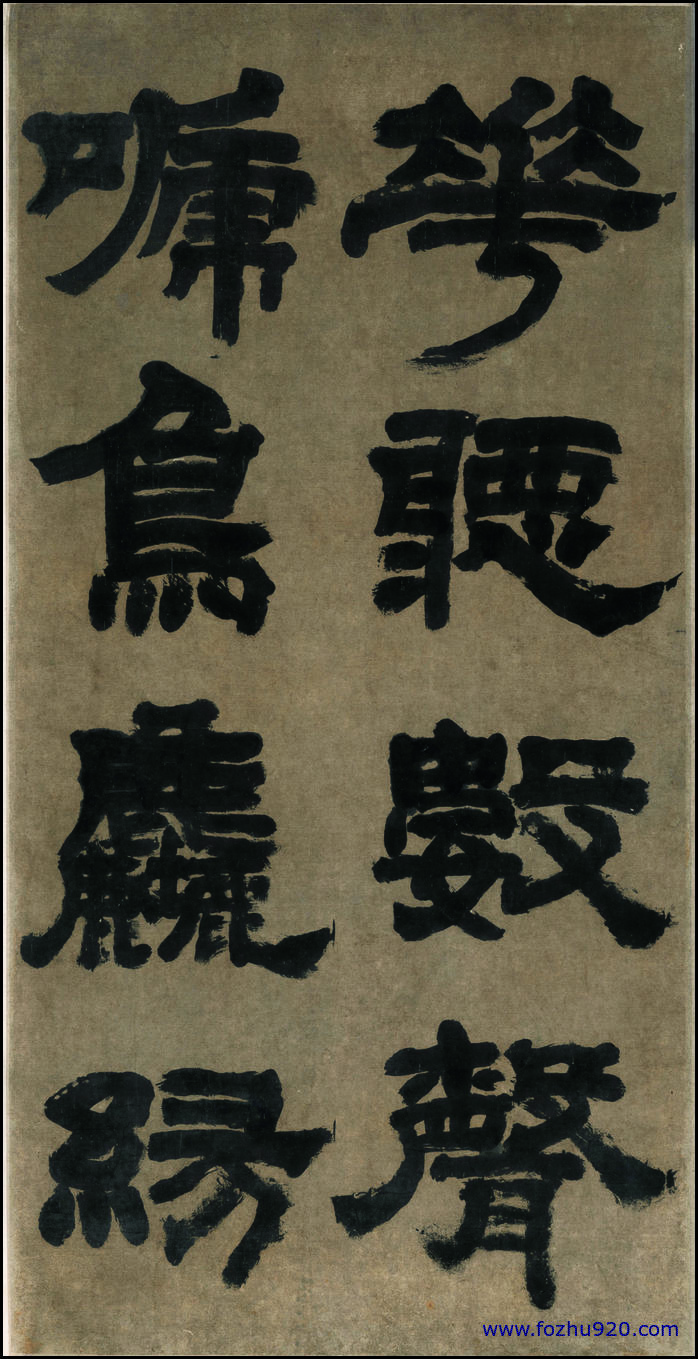 華聽數聲
啼鳥塵緣
www.fozhu920.com